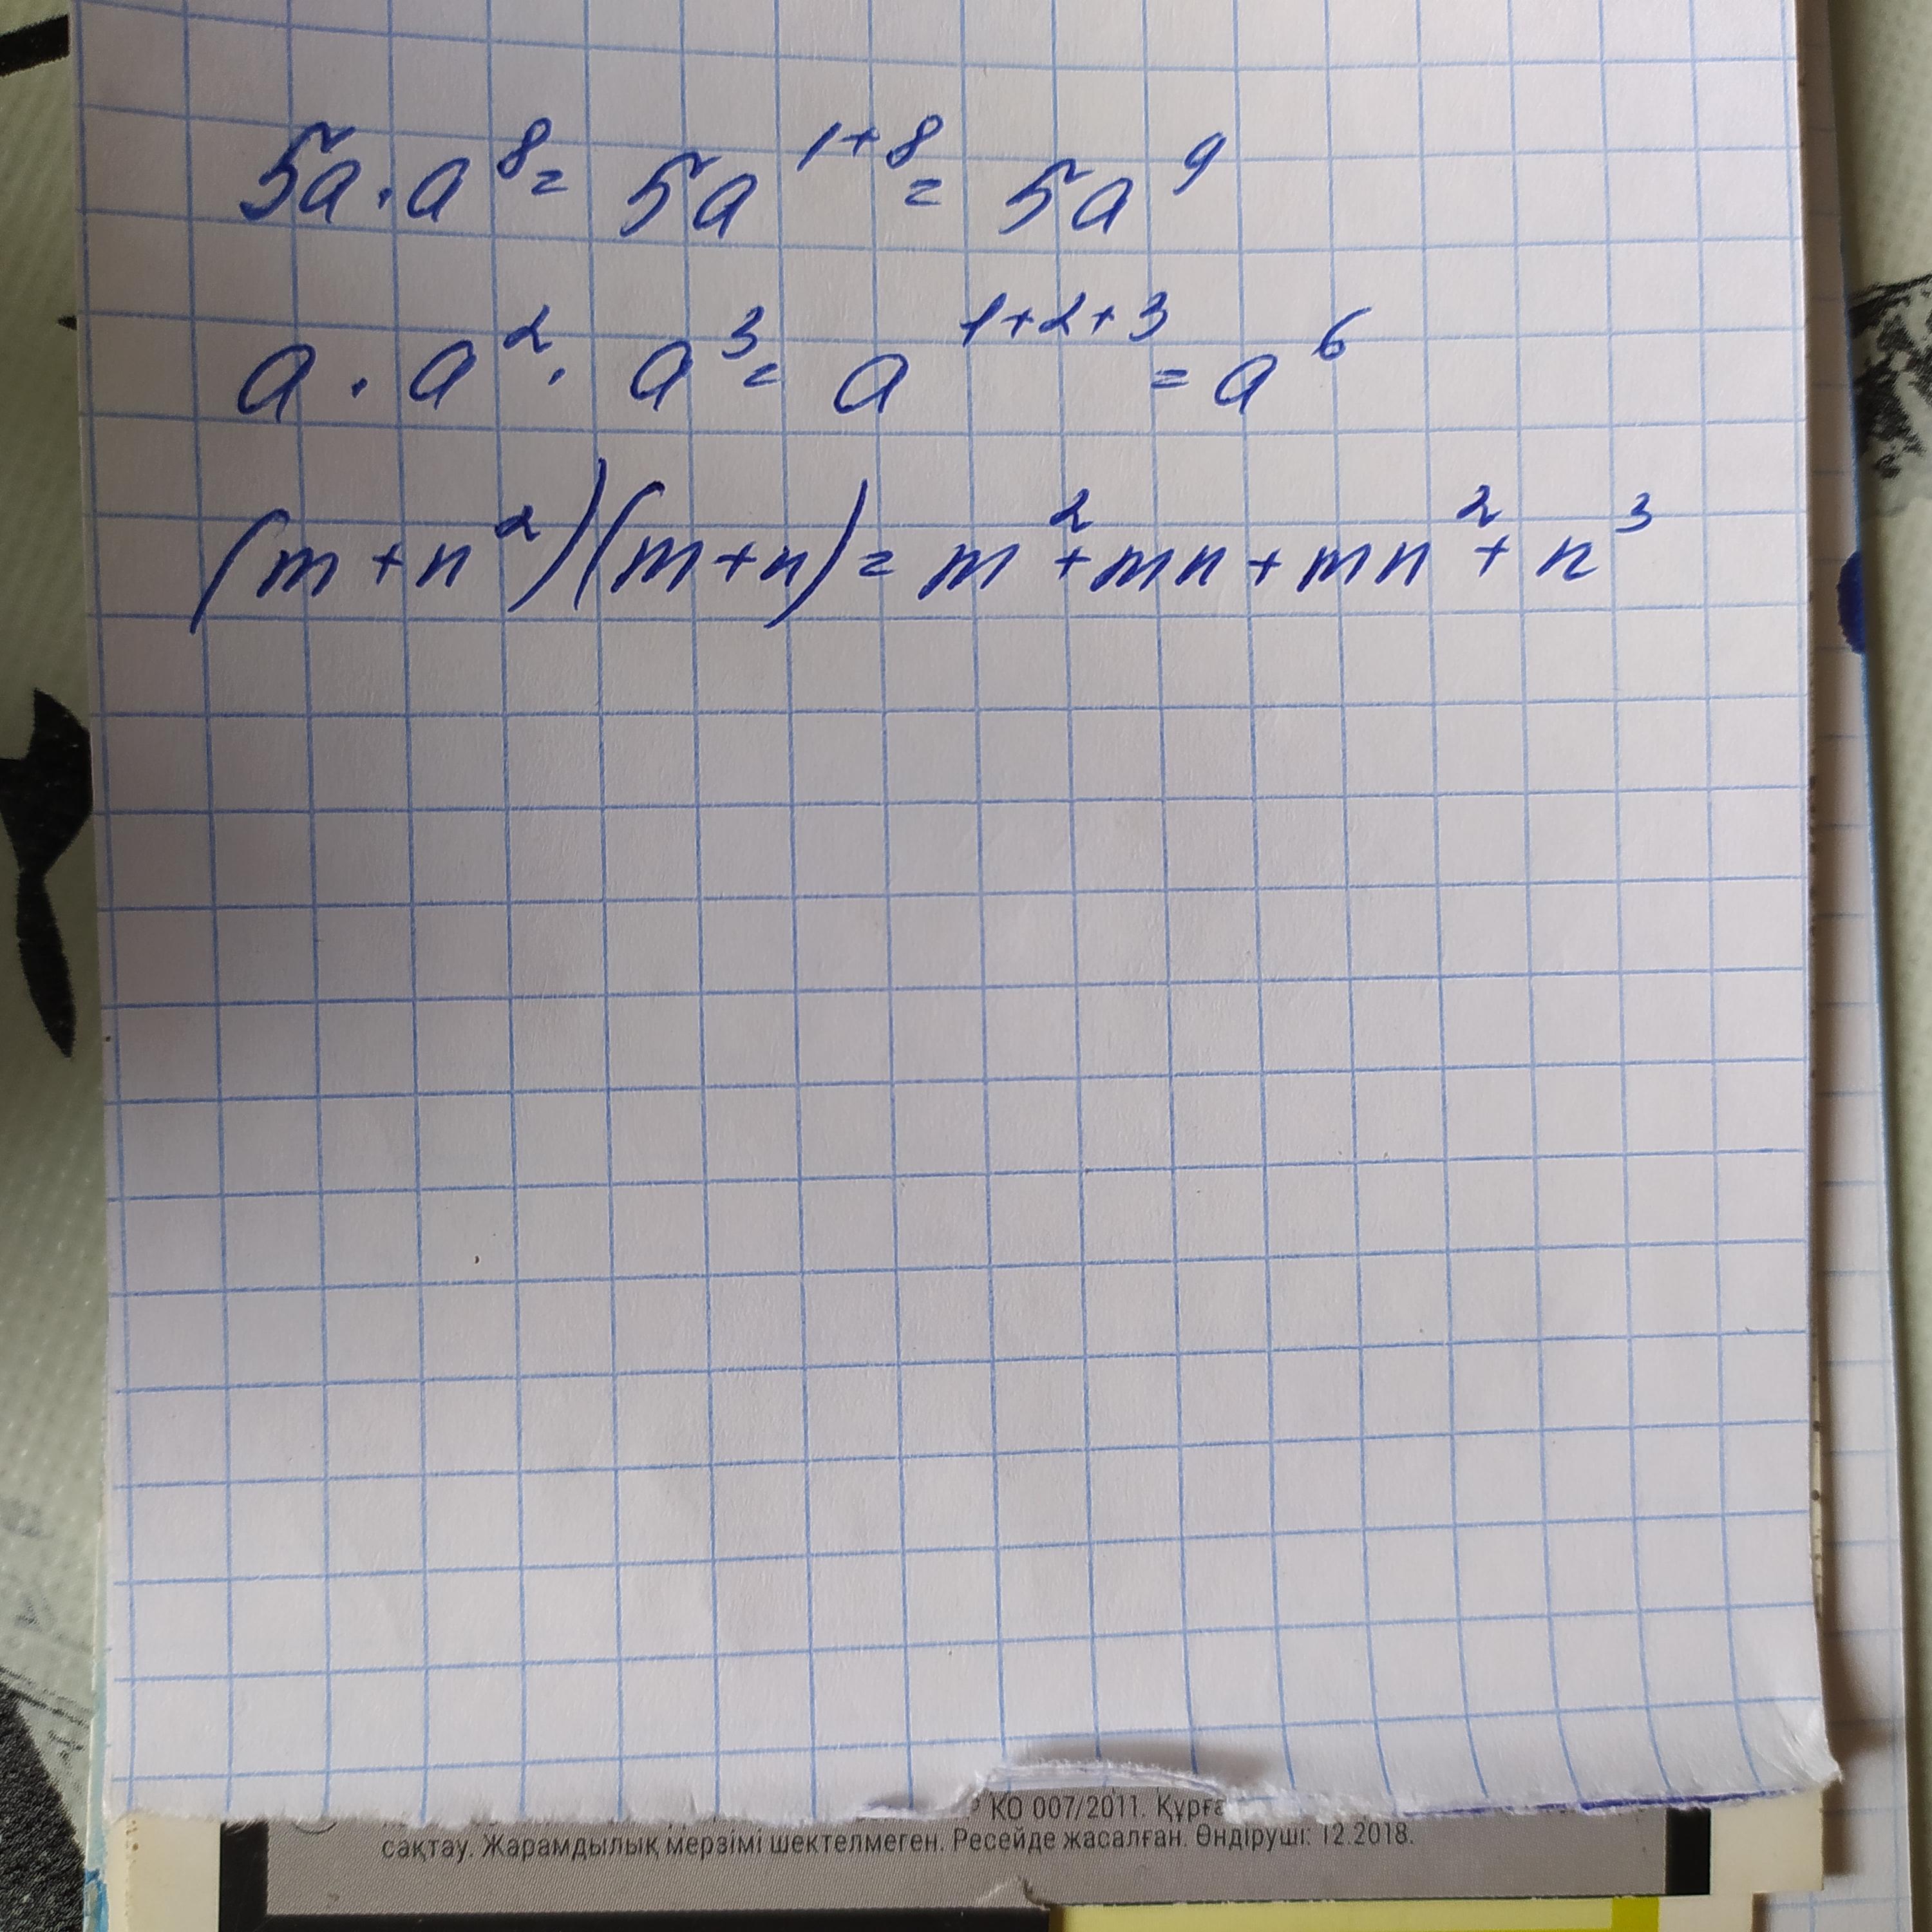 5a · a⁸ = 5a¹⁺⁸ = 5a⁹
a · a² · a³ = a¹⁺²⁺³ = a⁶
(m+n²)(m+n) = m² + mn + mn² + n³
КО 007/2011.
сақтау. Жарамдылық мерзімі шектелмеген. Ресейде жасалған. Өндіруші: 12.2018.